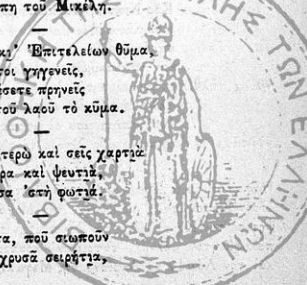 πη τοῦ Μικέλη.
κι' Ἐπιτελείων θῦμα,
τοι γηγενεῖς,
σετε πρηνεῖς
τοῦ λαοῦ τὸ κῦμα.
τερὼ καὶ σεῖς χαρτιὰ
ρα καὶ ψευτιά,
σα 'στὴ φωτιά.
τα, ποῦ σιωποῦν
χρυσᾶ σειρήτια,
ΤΗΣ ΤΩΝ ΕΛΛΗΝΩΝ